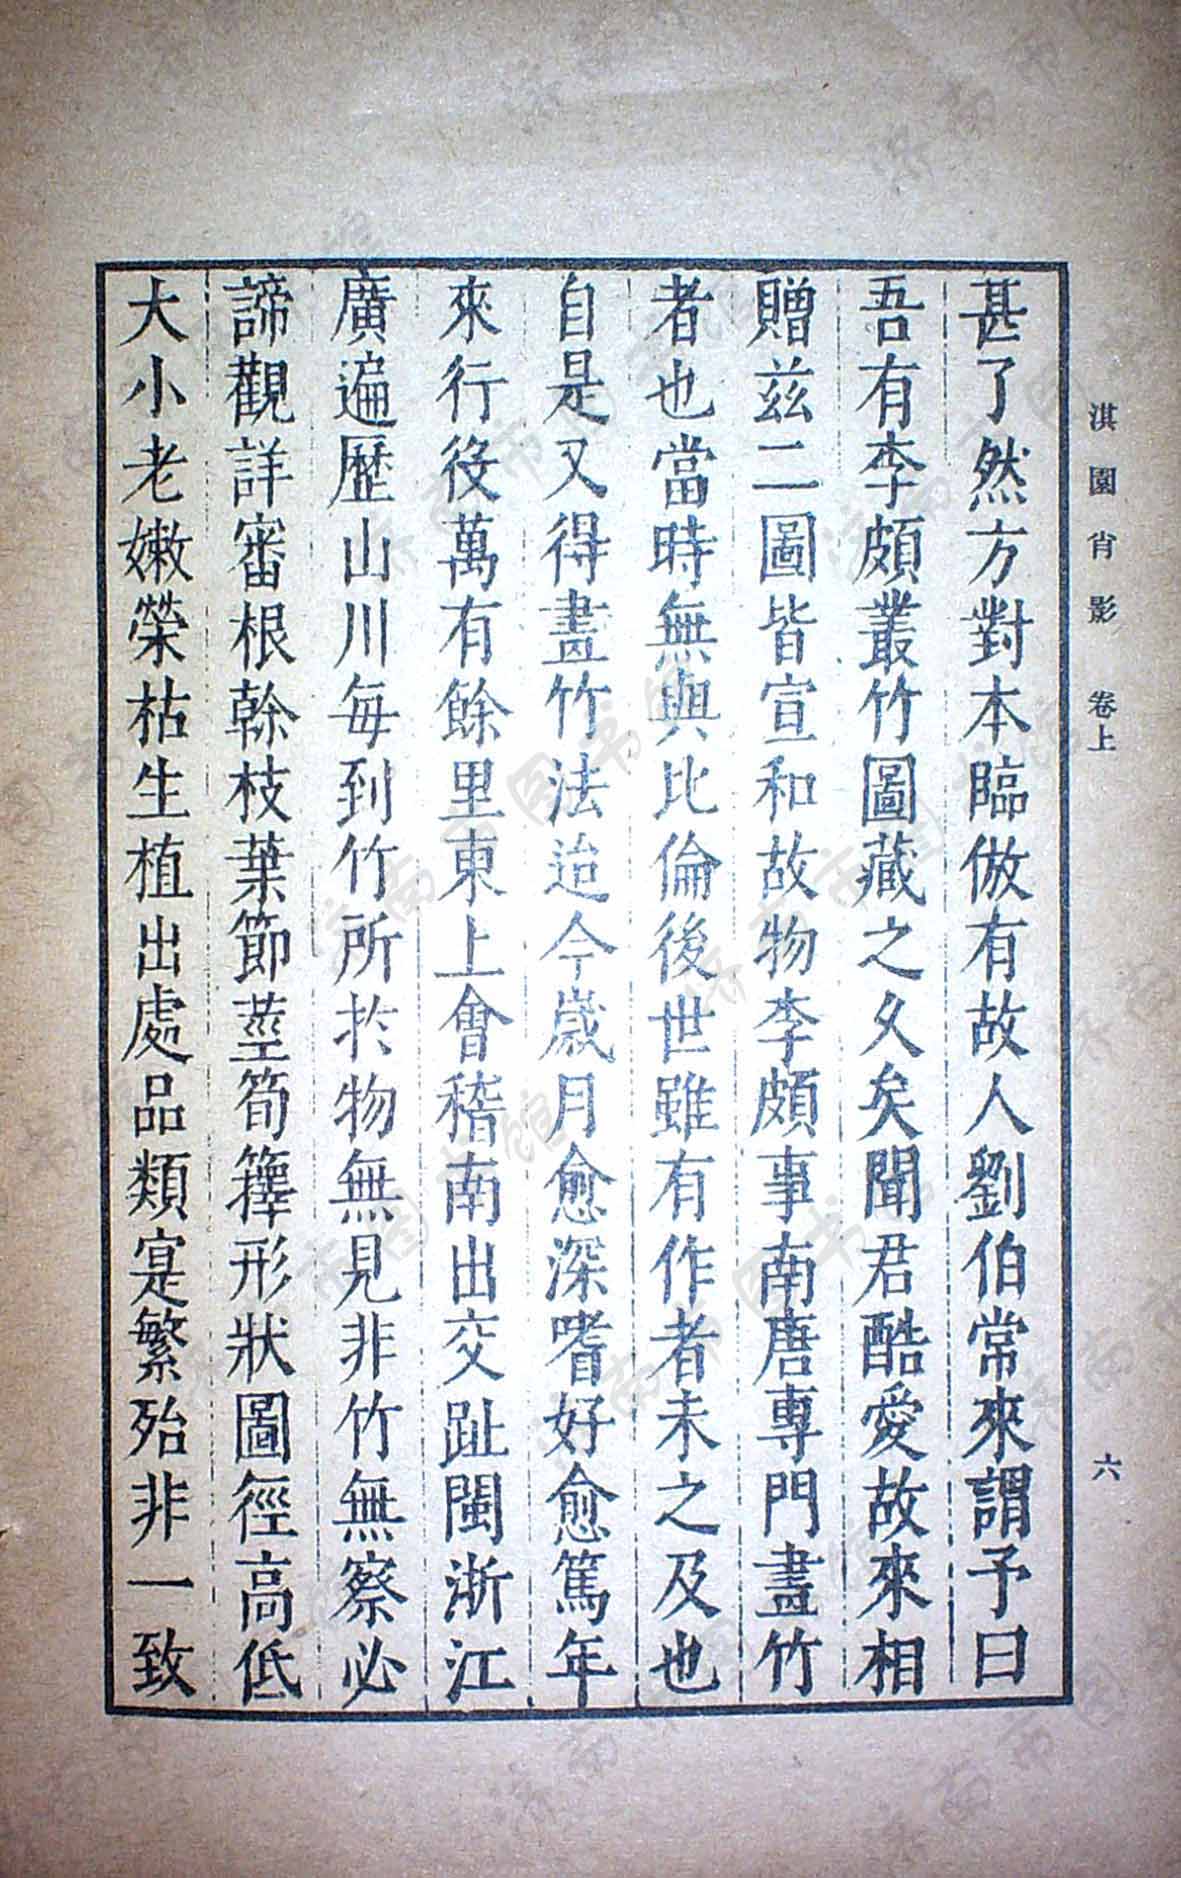 淇園肖影 卷上 六
甚了然方對本臨倣有故人劉伯常來謂予曰
吾有李頗叢竹圖藏之久矣聞君酷愛故來相
贈茲二圖皆宣和故物李頗事南唐專門畫竹
者也當時無與比倫後世雖有作者未之及也
自是又得畫竹法迨今歲月愈深嗜好愈篤年
來行役萬有餘里東上會稽南出交趾閩浙江
廣遍歷山川每到竹所於物無見非竹無察必
諦觀詳審根榦枝葉節莖筍籜形狀圖徑高低
大小老嫩榮枯生植出處品類寔繁殆非一致